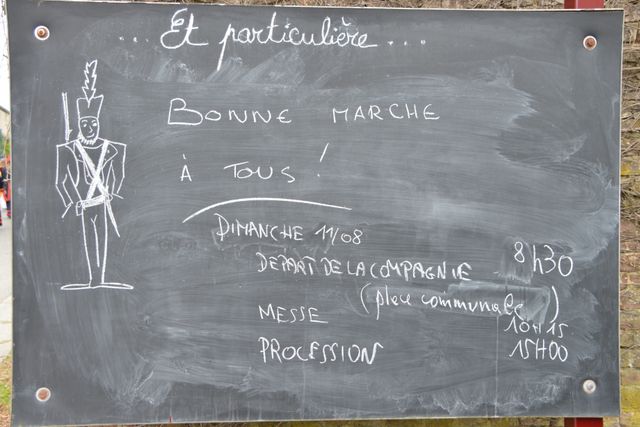 ... Et particulière ...
BONNE MARCHE
À TOUS !
DIMANCHE 11/08
DEPART DE LA COMPAGNIE 8h30
(place communale)
MESSE 10H15
PROCESSION 15H00